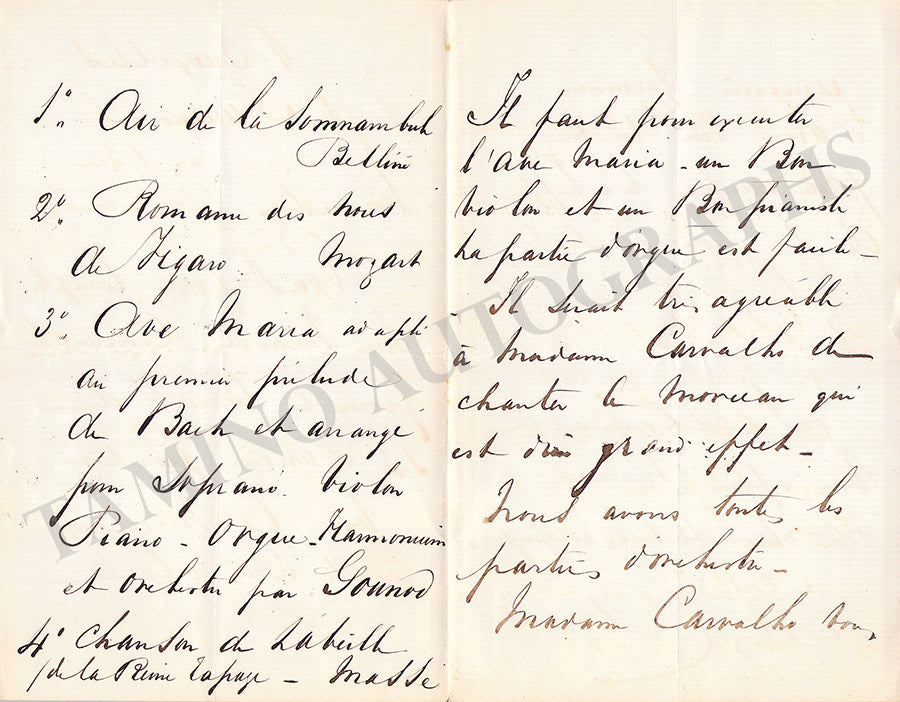 1° Air de la Somnambule
Bellini
2° Romance des Noces
de Figaro Mozart
3° Ave Maria adapté
au premier prélude
de Bach et arrangé
pour Soprano - Violon
Piano - Orgue - Harmonium
et Orchestre par Gounod
4° Chanson de l'abeille
(de la Reine Topaze - Massé
Il faut pour executer
l'Ave Maria - un Bon
violon et un Bon pianiste
La partie d'orgue est facile -
- Il serait très agréable
à Madame Carvalho de
chanter ce Morceau qui
est d'un grand effet -
Nous avons toutes les
parties d'orchestre -
Madame Carvalho
TAMINO AUTOGRAPHS